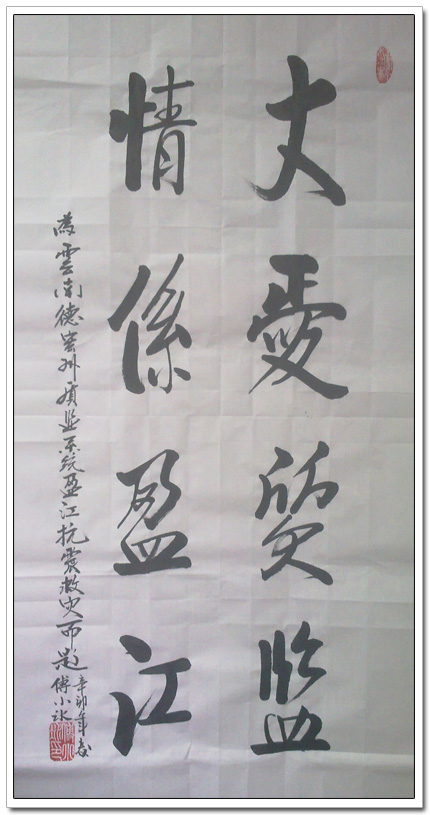 大爱质监
情係盈江
為雲南德宏州质监系统盈江抗震救灾而题
辛卯年春
傅小冰